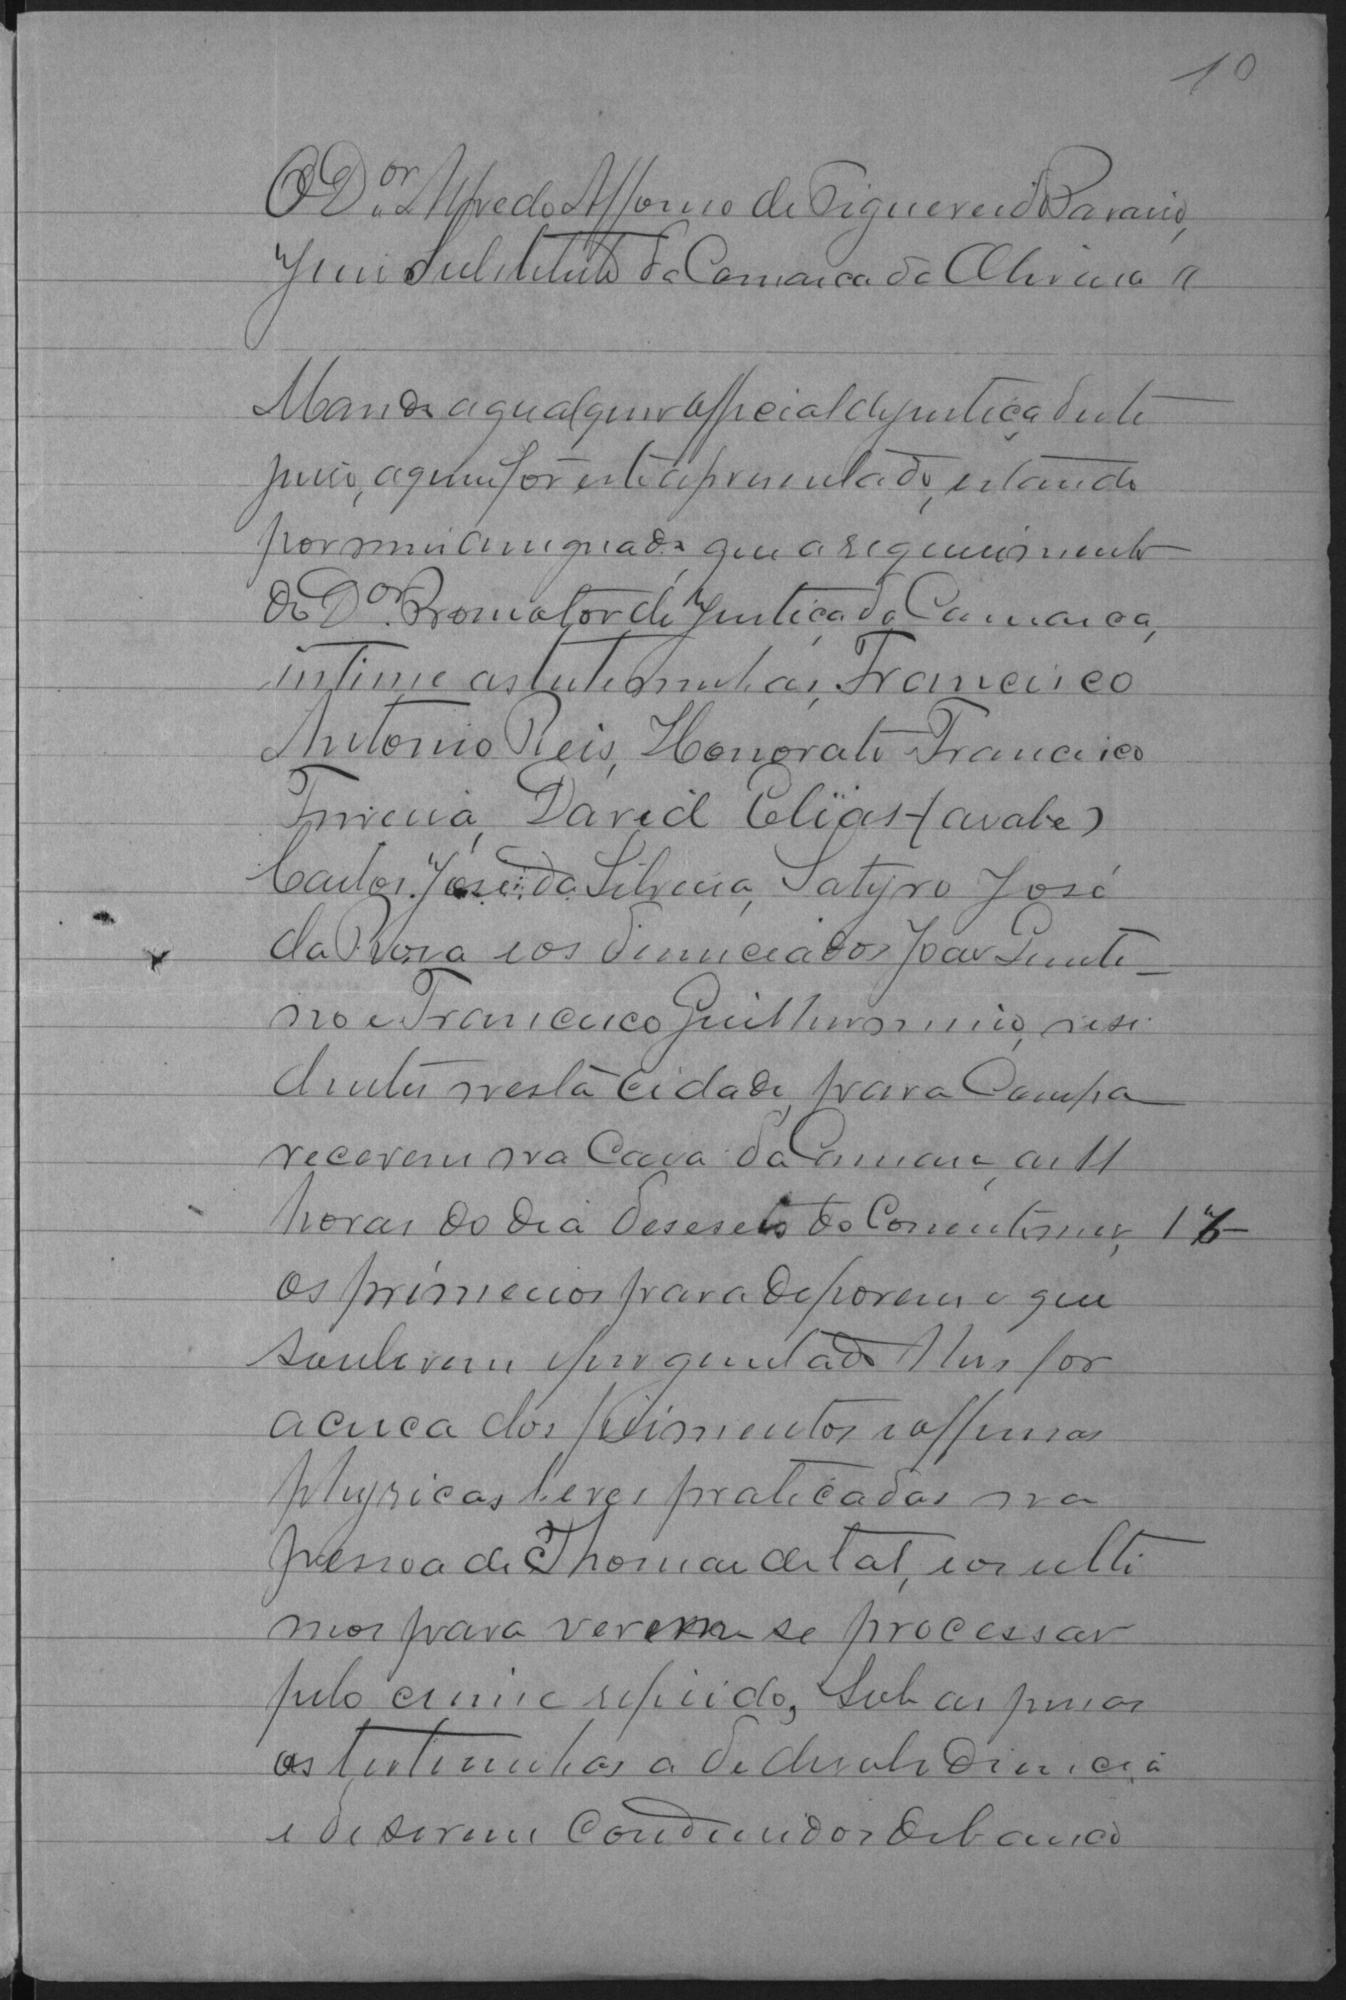 10
O D.or Alfredo Affonso de Figueredo Paraiso,
Juiz Substituto da Comarca da Oliveira //
Manda a qualquer official de justiça deste
juiso, a quem fôr este apresentado, estando
por mim assignado, que a requerimento
do D.or Promotor de Justiça da Comarca,
intime as testemunhas, Francisco
Antonio Reis, Honorato Francisco
David Elias (arabe)
Carlos José da Silveira, Satyro José
da Rosa e os denunciados João
no e Francisco Guilhermino, resi
dentes nesta cidade, para Compa
recerem na Casa da Camara, as 11
horas do dia deseseis do Corrente mez, 16
os primeiros para deporem o que
souberem e perguntado lhes for
acerca dos ferimentos e offensas
physicas leves praticadas na
pessoa de Thomaz de tal, e os ulti
mos para verem se processar
pelo crime referido, Sob as penas
as testemunhas a de desobediencia
e de serem Condusidos debaixo